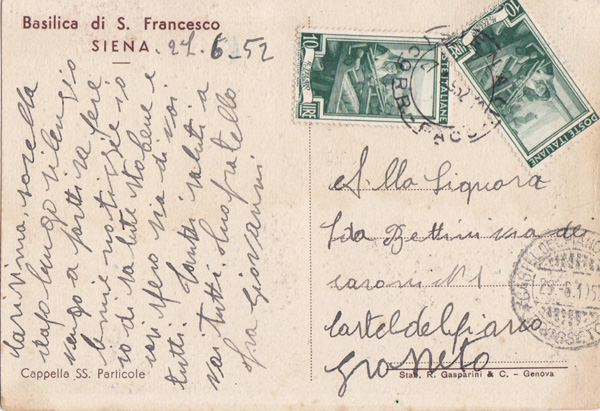 Basilica di S. Francesco
SIENA. 27-6-52
Carissima sorella
dopo lungo silenzio
vengo a farti sapere
le mie notizie io
di salute sto bene e
così spero sia di voi
tutti. Tanti saluti a
voi tutti. tuo fratello
fra Giovanni
Cappella SS. Particole
10
LIRE
POSTE ITALIANE
10
LIRE
POSTE ITALIANE
Alla Signora
Ida Bettini via dei
Casoni N 1
Castel del piano
Groseto
CASTEL DEL PIANO
GROSSETO
Stab. R. Gasparini & C. - Genova